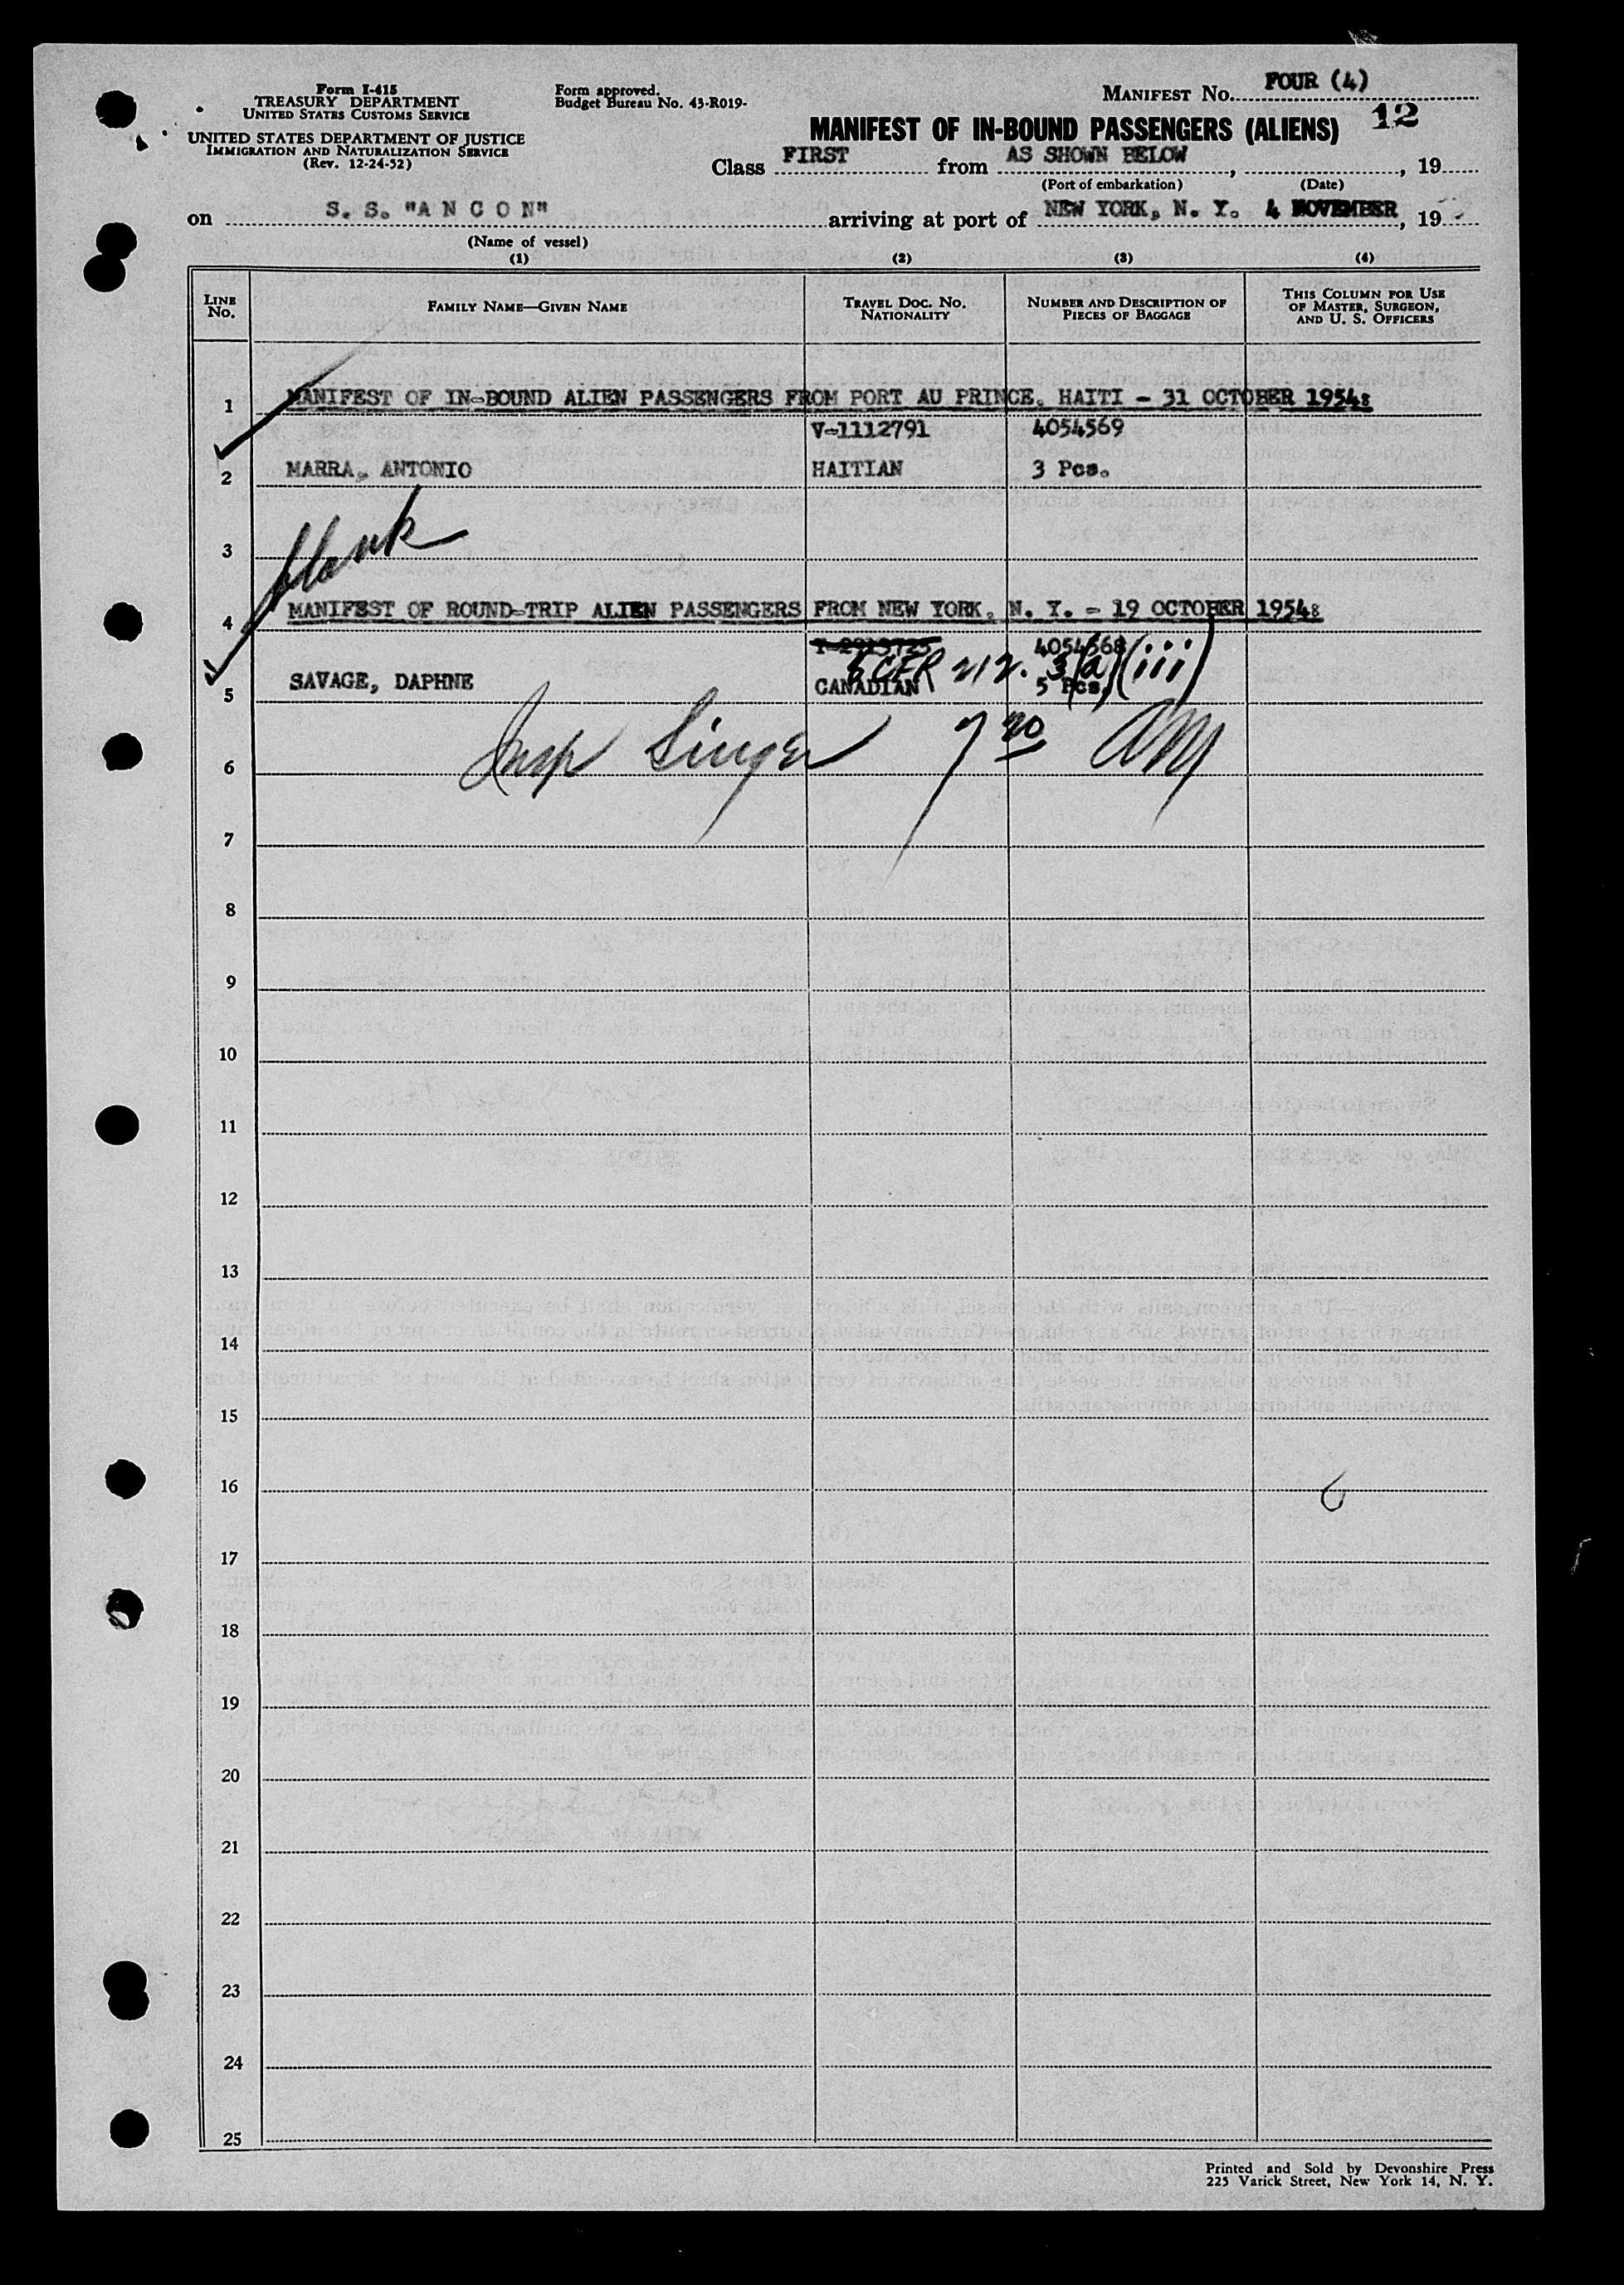 Form I-415
TREASURY DEPARTMENT
UNITED STATES CUSTOMS SERVICE
UNITED STATES DEPARTMENT OF JUSTICE
IMMIGRATION AND NATURALIZATION SERVICE
(Rev. 12-24-52)
Form approved.
Budget Bureau No. 43-R019-
MANIFEST NO. FOUR (4)
12
MANIFEST OF IN-BOUND PASSENGERS (ALIENS)
Class FIRST from AS SHOWN BELOW, , 19
(Port of embarkation) (Date)
on S. S. "A N C O N" arriving at port of NEW YORK, N. Y. 4 NOVEMBER, 19
(Name of vessel)
(1) (2) (3) (4)
LINE NO. FAMILY NAME—GIVEN NAME TRAVEL DOC. NO. NATIONALITY NUMBER AND DESCRIPTION OF PIECES OF BAGGAGE THIS COLUMN FOR USE OF MASTER, SURGEON, AND U. S. OFFICERS
1 MANIFEST OF IN-BOUND ALIEN PASSENGERS FROM PORT AU PRINCE, HAITI - 31 OCTOBER 1954:
V-1112791 4054569
2 MARRA, ANTONIO HAITIAN 3 Pcs.
blank
3
4 MANIFEST OF ROUND-TRIP ALIEN PASSENGERS FROM NEW YORK, N. Y. - 19 OCTOBER 1954:
4054568
CFR 212. 3(a)(iii)
5 SAVAGE, DAPHNE CANADIAN 5 Pcs.
Insp Singer 7 20 AM
6
7
8
9
10
11
12
13
14
15
16
17
18
19
20
21
22
23
24
25
Printed and Sold by Devonshire Press
225 Varick Street, New York 14, N. Y.